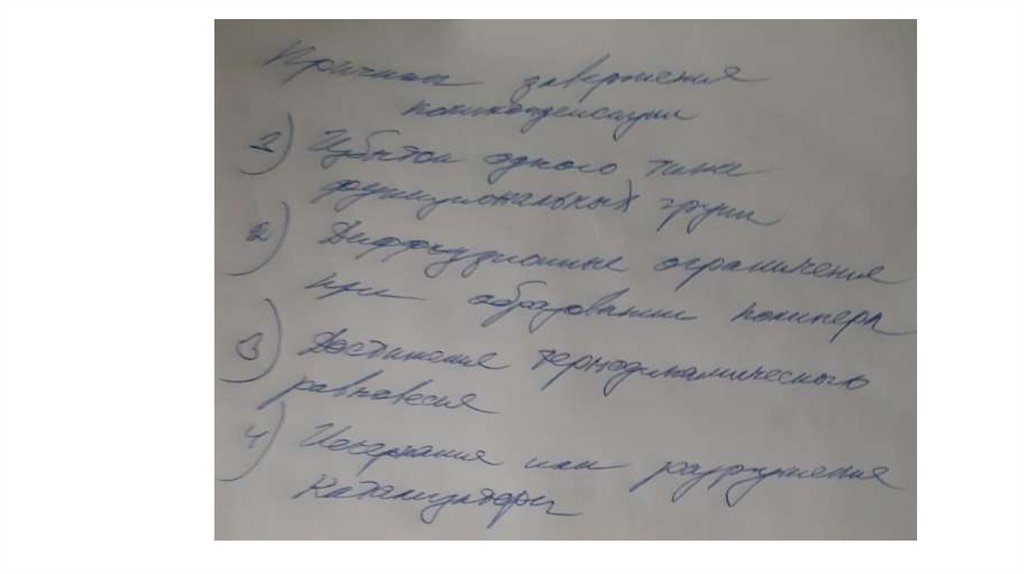 Причины завершения
поликонденсации
1) Избыток одного типа
функциональных групп
2) Диффузионные ограничения
при образовании полимера
3) Достижения термодинамического
равновесия
4) Исчерпания или разрушения
катализатора